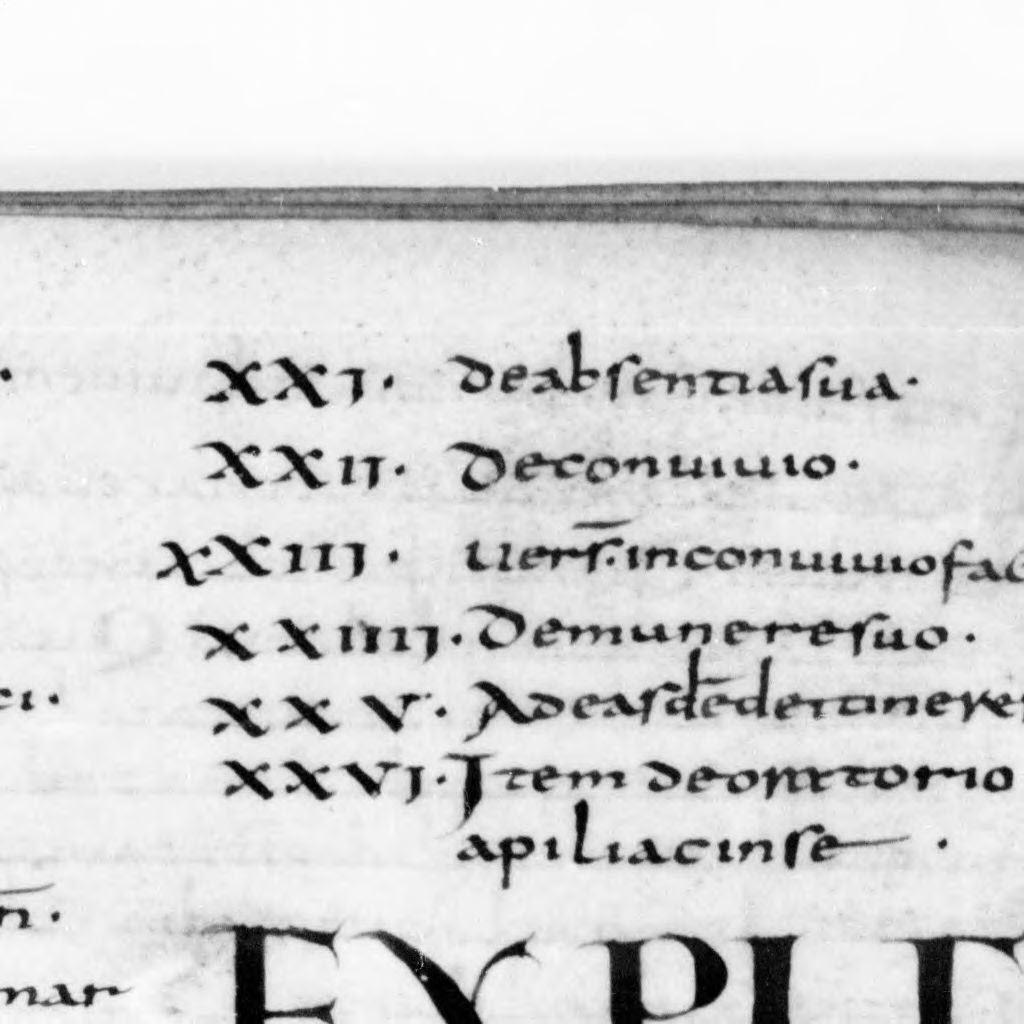 XXI· de absentia sua·
XXII· De conuiuio·
XXIII· uers̄· in conuiuio
XXIIII· De munere suo·
XXV· Ad easdē de
XXVI· Item de oratorio
apiliacinse·
ci·
n̄·
mar
EXPLI